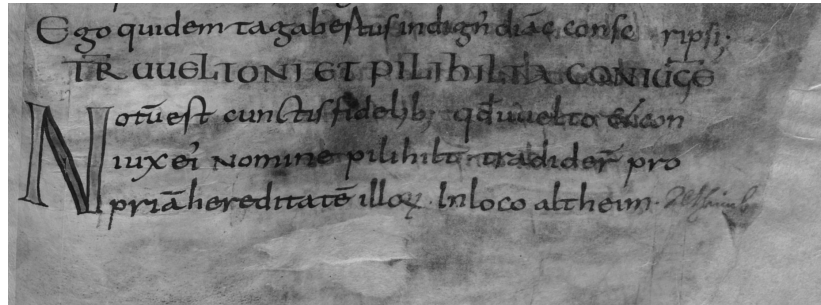 Ego quidem tagabertus indigñ diāc, conſc ripſi;
TR̄ UUELTONI ET PILIHILTA CONIUGE
Notūeſt cunctiſ fidelib; qđ uuelto &
iux eī nomine pilihilt tradider̄ pro
priā hereditatē illoꝝ. In loco altheim.